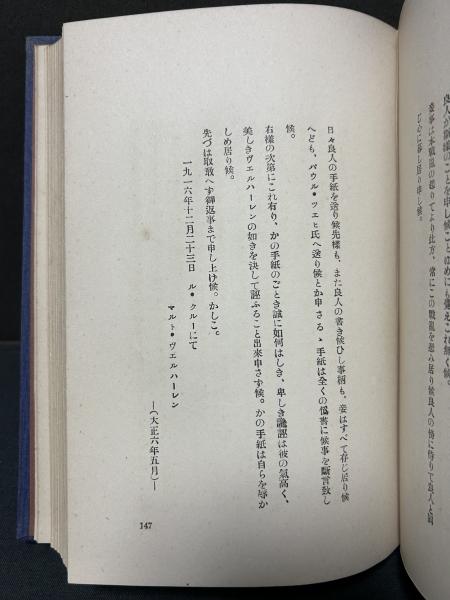 良人が勘弁のことを申し候こと
戀事は本戰亂の起りてより此方、常にこの戰亂を怨み居り候良人の傍に侍りて良人と同
じ心に暮し居り申し候。
日々良人の手紙を送り候先樣も、また良人の書き候ひし事柄も、妾はすべて存じ居り候
へども、パウル・ツエヒ氏へ送り候とか申さるゝ手紙は全くの僞書に候事を斷言致し
候。
右樣の次第にこれ有り、かの手紙のごとき誠に如何はしき、卑しき讒誣は彼の氣高く、
美しきヴェルハーレンの如きを決して誣ふること出來申さず候。かの手紙は自らを辱か
しめ居り候。
先づは取敢へず御返事まで申し上げ候。かしこ。
一九一六年十二月二十三日 ル・クルーにて
マルト・ヴェルハーレン
—(大正六年五月)—
147